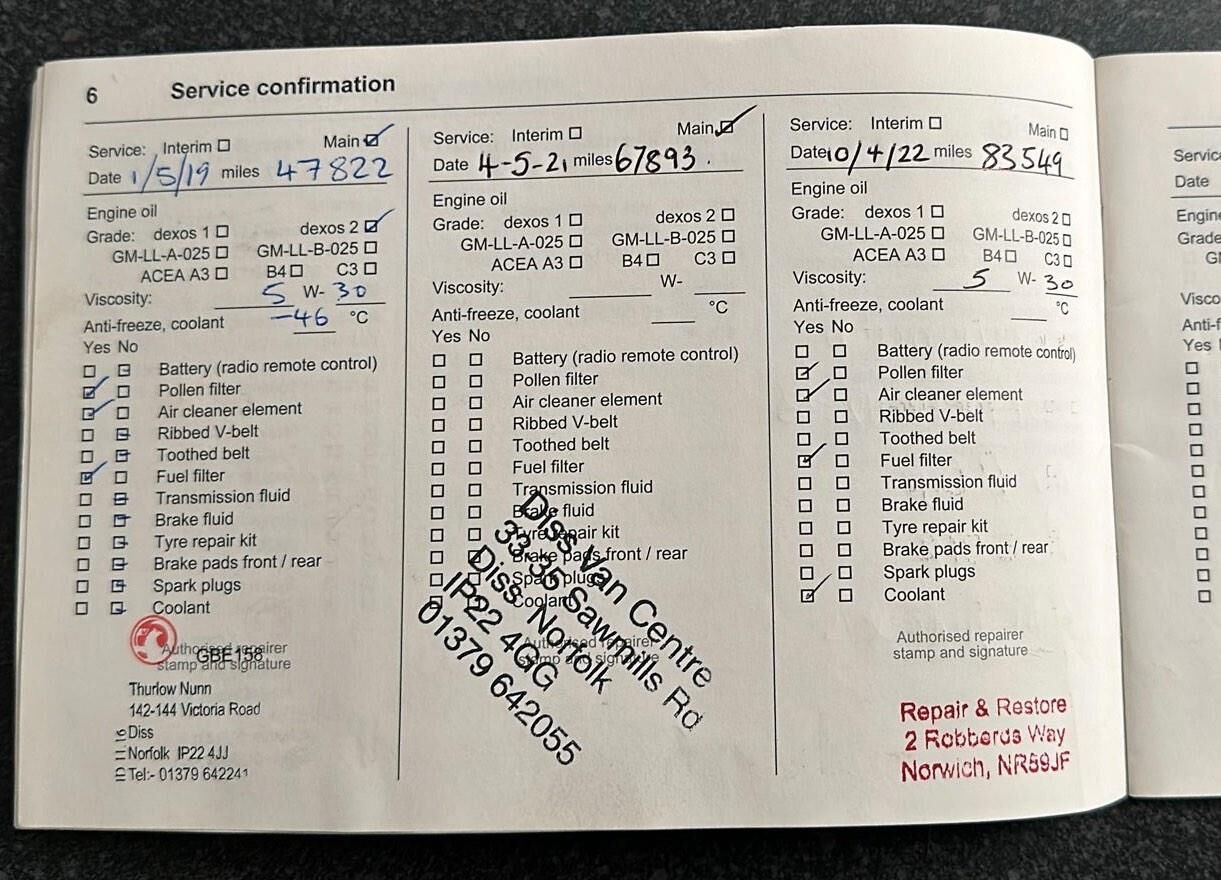 6 Service confirmation
Service: Interim ☐ Main ☑
Date 1/5/19 miles 47822
Engine oil
Grade: dexos 1 ☐ dexos 2 ☑
GM-LL-A-025 ☐ GM-LL-B-025 ☐
ACEA A3 ☐ B4 ☐ C3 ☐
Viscosity: 5 W- 30
Anti-freeze, coolant -46 °C
Yes No
Battery (radio remote control)
Pollen filter
Air cleaner element
Ribbed V-belt
Toothed belt
Fuel filter
Transmission fluid
Brake fluid
Tyre repair kit
Brake pads front / rear
Spark plugs
Coolant
Authorised repairer
stamp and signature
GBE158
Thurlow Nunn
142-144 Victoria Road
Diss
Norfolk IP22 4JJ
Tel:- 01379 642241
Service: Interim ☐ Main ☑
Date 4-5-21 miles 67893.
Engine oil
Grade: dexos 1 ☐ dexos 2 ☐
GM-LL-A-025 ☐ GM-LL-B-025 ☐
ACEA A3 ☐ B4 ☐ C3 ☐
Viscosity: W-
Anti-freeze, coolant °C
Yes No
Battery (radio remote control)
Pollen filter
Air cleaner element
Ribbed V-belt
Toothed belt
Fuel filter
Transmission fluid
Brake fluid
Tyre repair kit
Brake pads front / rear
Spark plugs
Coolant
Authorised repairer
stamp and signature
Diss Van Centre
33-35 Sawmills Rd
Diss Norfolk
IP22 4GG
01379 642055
Service: Interim ☐ Main ☐
Date 10/4/22 miles 83549
Engine oil
Grade: dexos 1 ☐ dexos 2 ☐
GM-LL-A-025 ☐ GM-LL-B-025 ☐
ACEA A3 ☐ B4 ☐ C3 ☐
Viscosity: 5 W- 30
Anti-freeze, coolant °C
Yes No
Battery (radio remote control)
Pollen filter
Air cleaner element
Ribbed V-belt
Toothed belt
Fuel filter
Transmission fluid
Brake fluid
Tyre repair kit
Brake pads front / rear
Spark plugs
Coolant
Authorised repairer
stamp and signature
Repair & Restore
2 Robberds Way
Norwich, NR59JF
Servic
Date
Engin
Grade
Visco
Anti-f
Yes